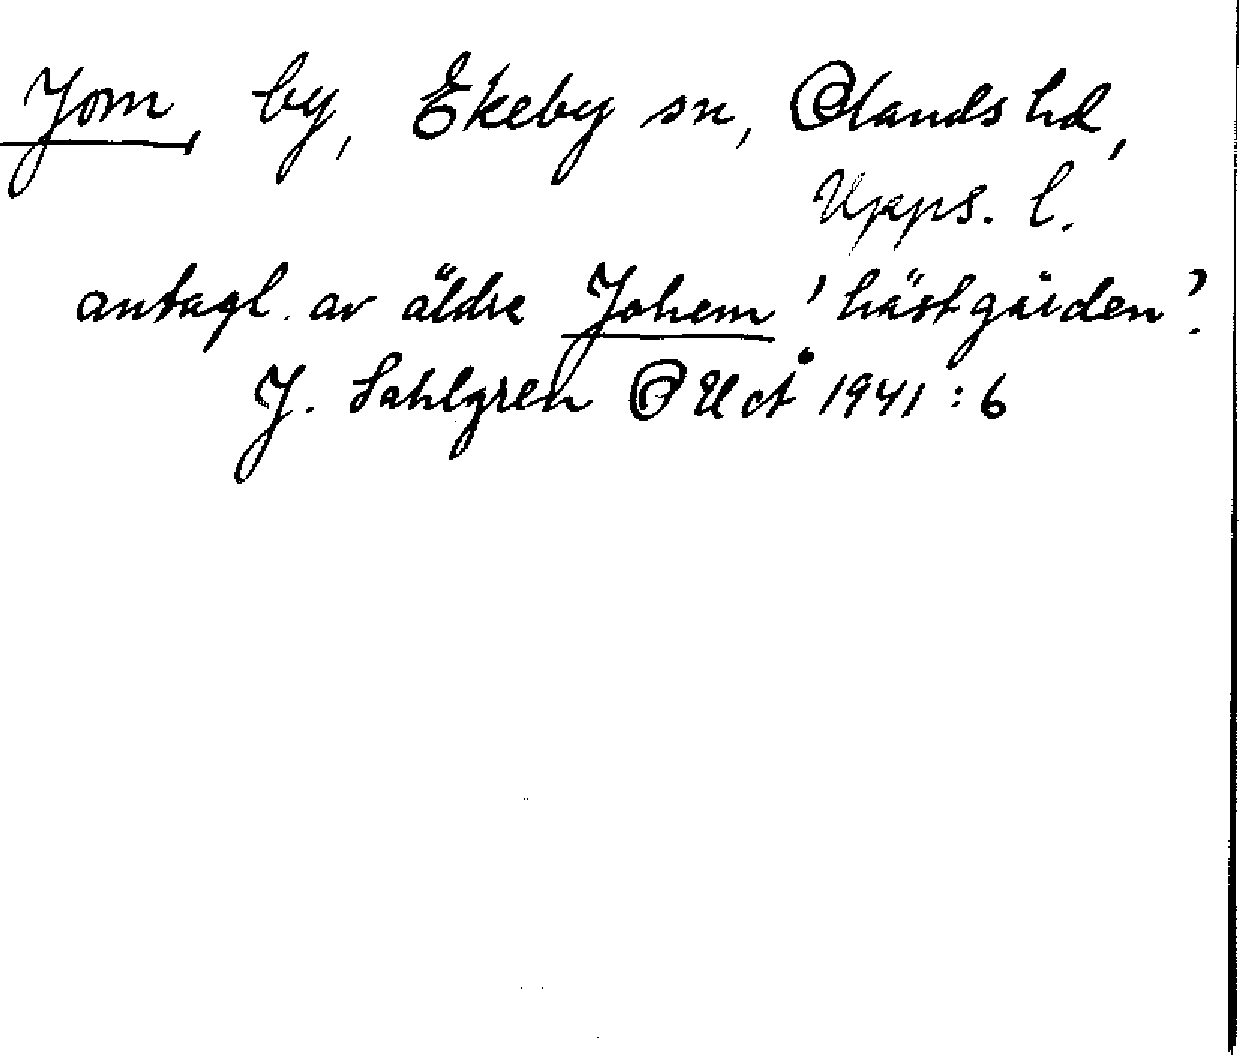 Jom, by, Ekeby sn, Olands hd,
Upps. l.
antagl. av äldre Johem 'hästgården'.
J. Sahlgren OUÅ 1941:6